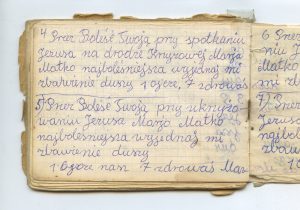 4 Przez Boleść Twoją przy spotkaniu
Jezusa na drodze Krzyżowej Maryjo
Matko najboleśniejsza wyjednaj mi
zbawienie duszy 1 ojcze, 7 zdrowaś
5) Przez Boleść Twoją przy ukrzyżo
waniu Jezusa Maryjo Matko
najboleśniejsza wyjednaj mi
zbawienie duszy
1 Ojcze nasz 7 zdrowaś Mar
6 Przez
niu J
Matko
zbaw
7)
Jezusa
najbo
zbaw